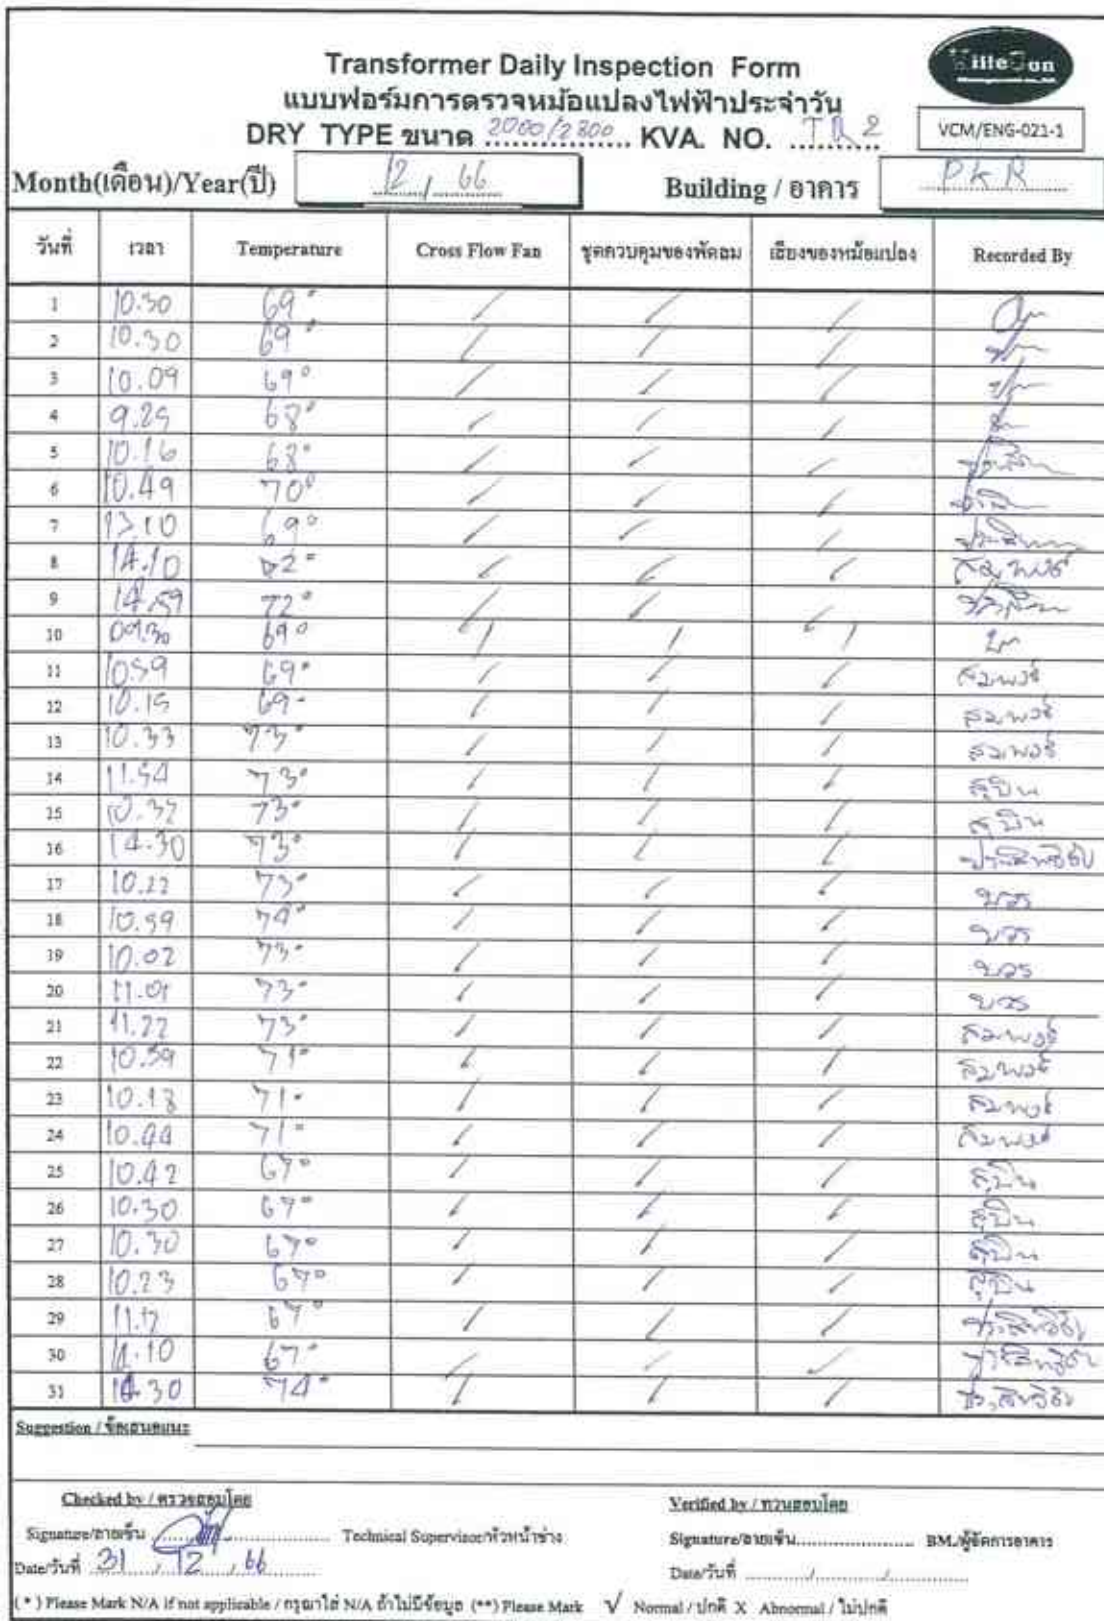 Transformer Daily Inspection Form
แบบฟอร์มการตรวจหม้อแปลงไฟฟ้าประจำวัน
DRY TYPE ขนาด 2000/2800 KVA. NO. TR 2
VCM/ENG-021-1
Month(เดือน)/Year(ปี) 12 / 66 Building / อาคาร PKR
วันที่ เวลา Temperature Cross Flow Fan ชุดควบคุมของพัดลม เสียงของหม้อแปลง Recorded By
1 10.30 69° / / /
2 10.30 69° / / /
3 10.09 69° / / /
4 9.25 68° / / /
5 10.16 68° / / /
6 10.49 70° / / /
7 13.10 69° / / /
8 14.10 / / / สมพงษ์
9 14.59 72° / / /
10 09.30 69° / / /
11 10.59 69° / / / สมพงษ์
12 10.15 69° / / / สมพงษ์
13 10.33 73° / / / สมพงษ์
14 11.54 73° / / / สุบิน
15 10.32 73° / / / สุบิน
16 14.30 73° / / / ประสิทธิชัย
17 10.22 73° / / / บวร
18 10.59 74° / / / บวร
19 10.02 73° / / / บวร
20 11.01 73° / / / บวร
21 11.22 73° / / / สมพงษ์
22 10.59 71° / / / สมพงษ์
23 10.18 71° / / / สมพงษ์
24 10.44 71° / / / สมพงษ์
25 10.42 67° / / / สุบิน
26 10.30 67° / / / สุบิน
27 10.30 67° / / / สุบิน
28 10.23 67° / / / สุบิน
29 11.12 67° / / / ประสิทธิชัย
30 67° / / / ประสิทธิชัย
31 14.30 74° / / / ประสิทธิชัย
Suggestion / ข้อเสนอแนะ
Checked by / ตรวจสอบโดย Verified by / ทวนสอบโดย
Signature/ลายเซ็น Technical Supervisor/หัวหน้าช่าง Signature/ลายเซ็น BM./ผู้จัดการอาคาร
Date/วันที่ 31 / 12 / 66 Date/วันที่ / /
( * ) Please Mark N/A if not applicable / กรุณาใส่ N/A ถ้าไม่มีข้อมูล (**) Please Mark √ Normal / ปกติ X Abnormal / ไม่ปกติ